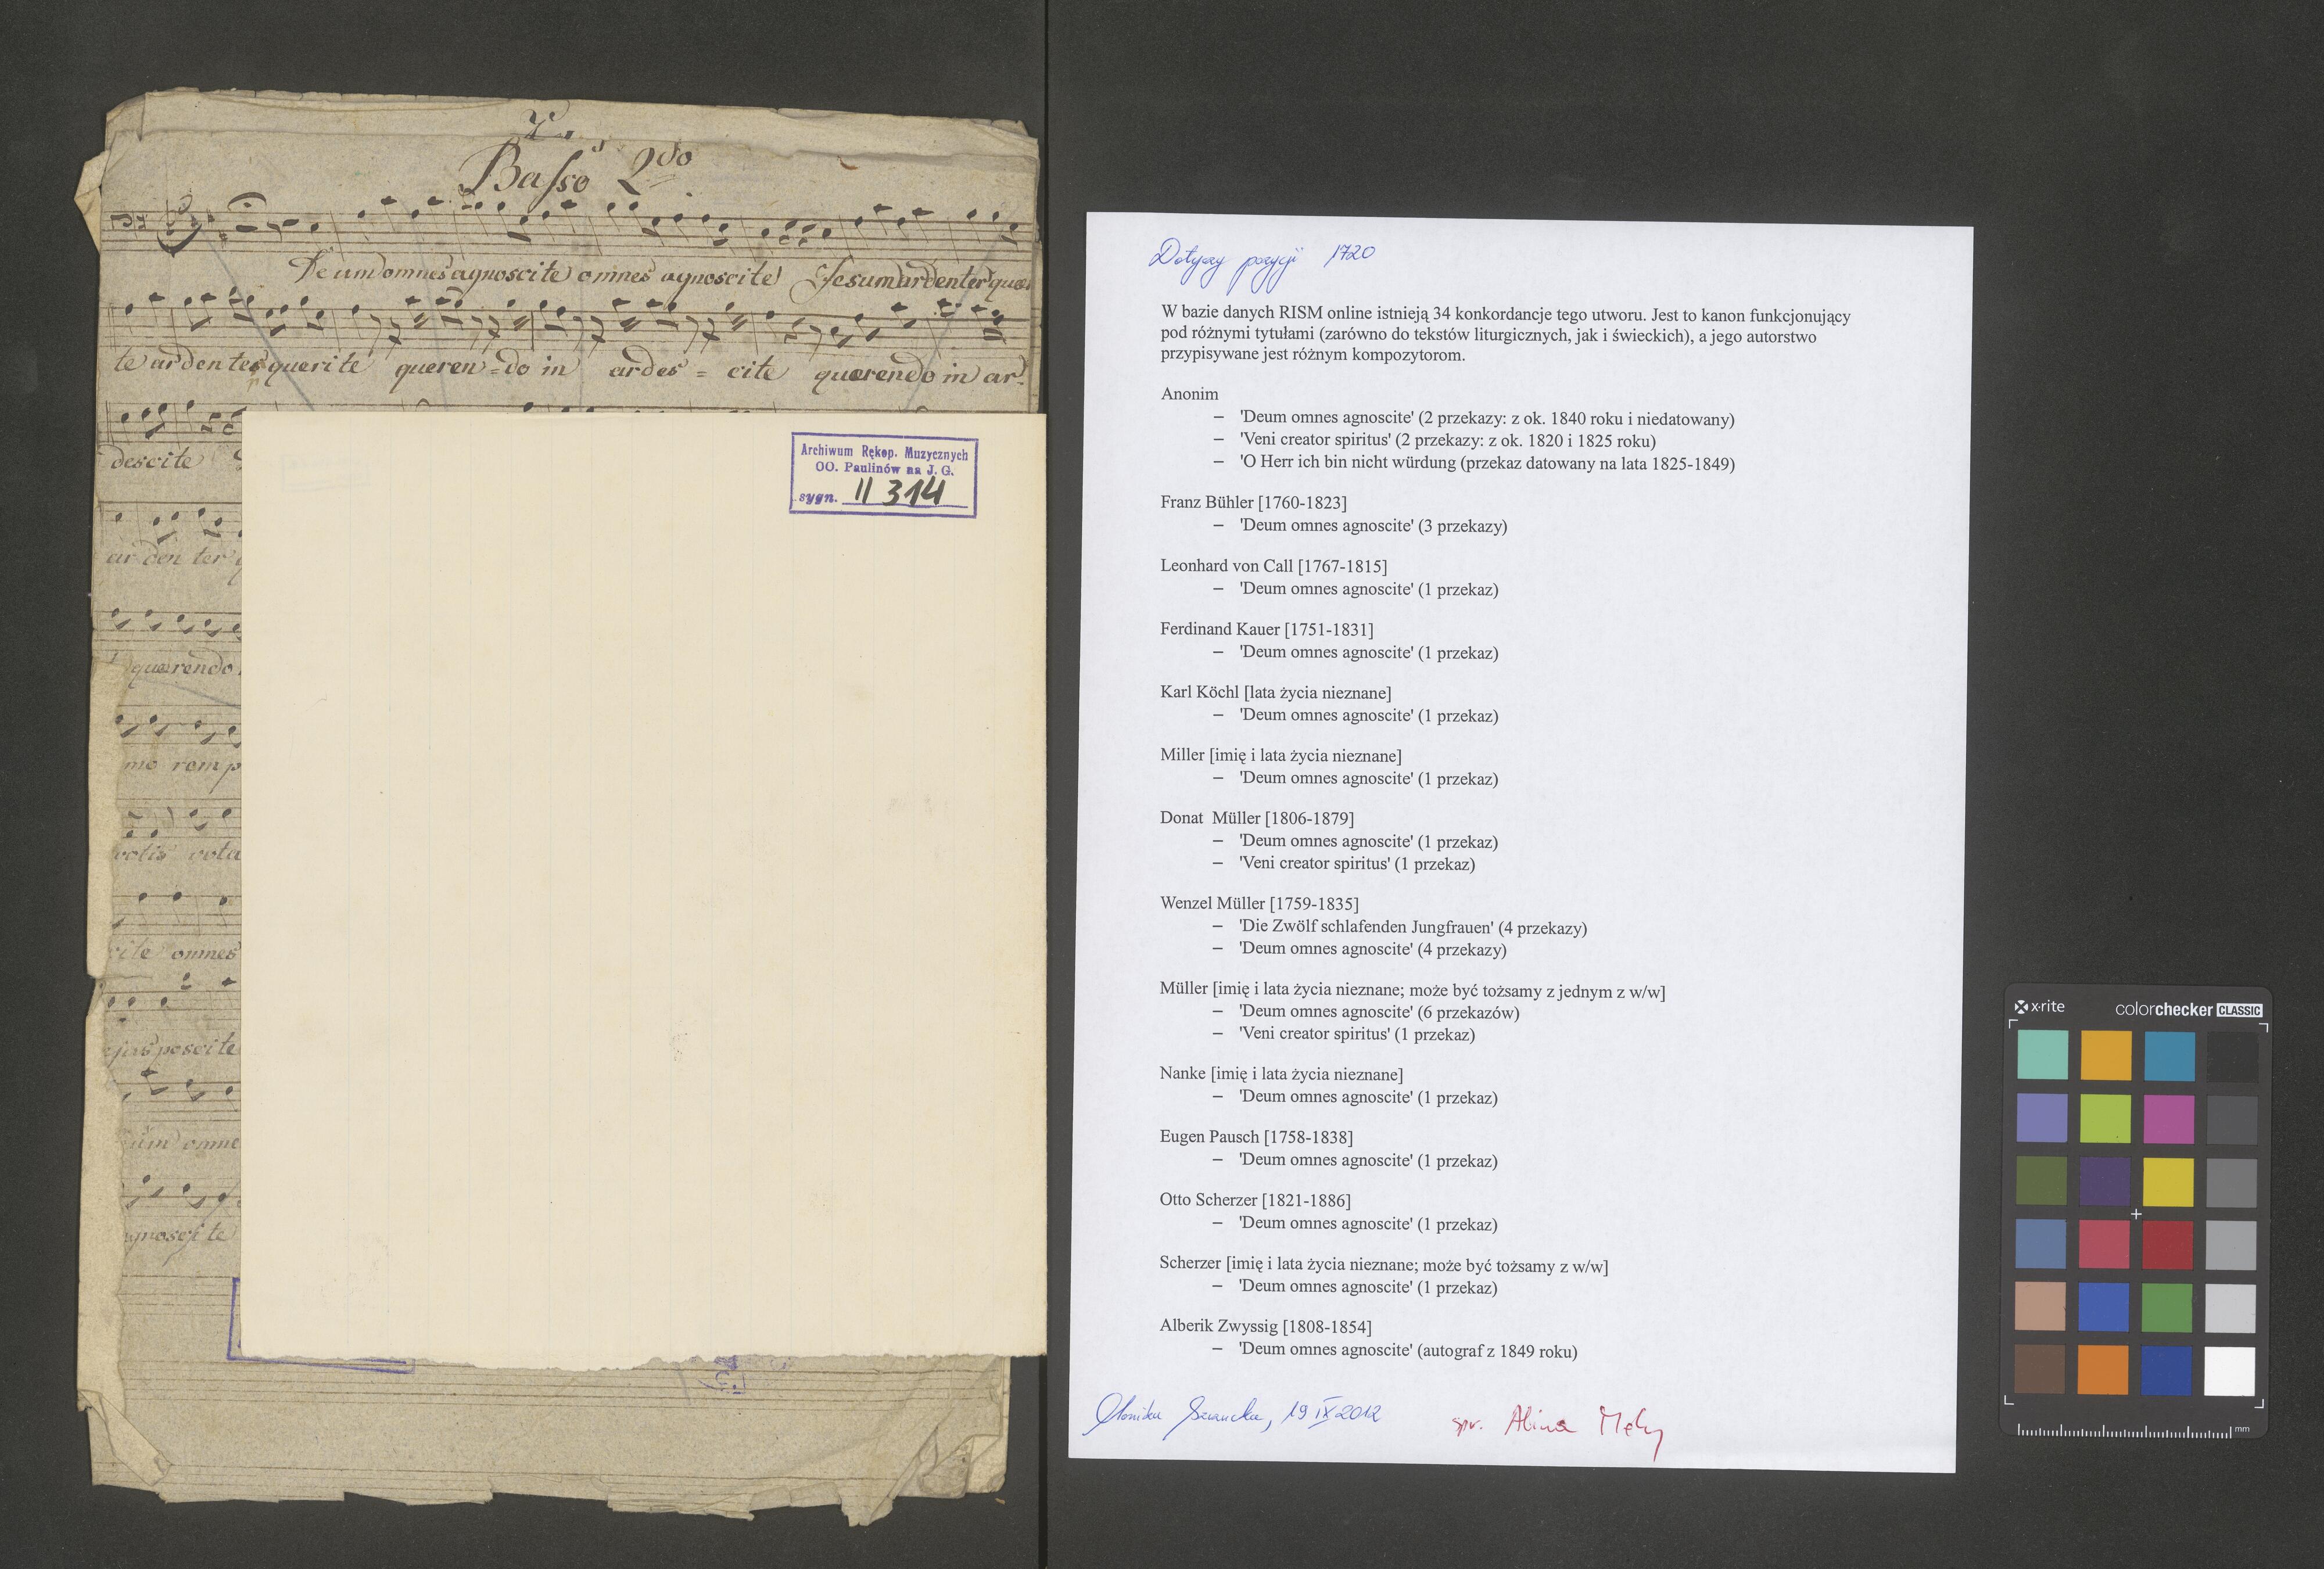 Basso 2do
Deum omnes agnoscite omnes agnoscite Jesum ardenter quæri
te ardenter querite queren=do in ardes=cite quærendo in ar-
descite
arden ter
quærendo
mo rem p
votis vota
cite omnes
ejus poscite
um omne
gnosci te
Archiwum Rękop. Muzycznych
OO. Paulinów na J. G.
sygn. II 314
Dotyczy pozycji 1720
W bazie danych RISM online istnieją 34 konkordancje tego utworu. Jest to kanon funkcjonujący
pod różnymi tytułami (zarówno do tekstów liturgicznych, jak i świeckich), a jego autorstwo
przypisywane jest różnym kompozytorom.
Anonim
– 'Deum omnes agnoscite' (2 przekazy: z ok. 1840 roku i niedatowany)
– 'Veni creator spiritus' (2 przekazy: z ok. 1820 i 1825 roku)
– 'O Herr ich bin nicht würdung (przekaz datowany na lata 1825-1849)
Franz Bühler [1760-1823]
– 'Deum omnes agnoscite' (3 przekazy)
Leonhard von Call [1767-1815]
– 'Deum omnes agnoscite' (1 przekaz)
Ferdinand Kauer [1751-1831]
– 'Deum omnes agnoscite' (1 przekaz)
Karl Köchl [lata życia nieznane]
– 'Deum omnes agnoscite' (1 przekaz)
Miller [imię i lata życia nieznane]
– 'Deum omnes agnoscite' (1 przekaz)
Donat Müller [1806-1879]
– 'Deum omnes agnoscite' (1 przekaz)
– 'Veni creator spiritus' (1 przekaz)
Wenzel Müller [1759-1835]
– 'Die Zwölf schlafenden Jungfrauen' (4 przekazy)
– 'Deum omnes agnoscite' (4 przekazy)
Müller [imię i lata życia nieznane; może być tożsamy z jednym z w/w]
– 'Deum omnes agnoscite' (6 przekazów)
– 'Veni creator spiritus' (1 przekaz)
Nanke [imię i lata życia nieznane]
– 'Deum omnes agnoscite' (1 przekaz)
Eugen Pausch [1758-1838]
– 'Deum omnes agnoscite' (1 przekaz)
Otto Scherzer [1821-1886]
– 'Deum omnes agnoscite' (1 przekaz)
Scherzer [imię i lata życia nieznane; może być tożsamy z w/w]
– 'Deum omnes agnoscite' (1 przekaz)
Alberik Zwyssig [1808-1854]
– 'Deum omnes agnoscite' (autograf z 1849 roku)
19 IX 2012
spr. Alina Mądry
x·rite colorchecker CLASSIC
mm